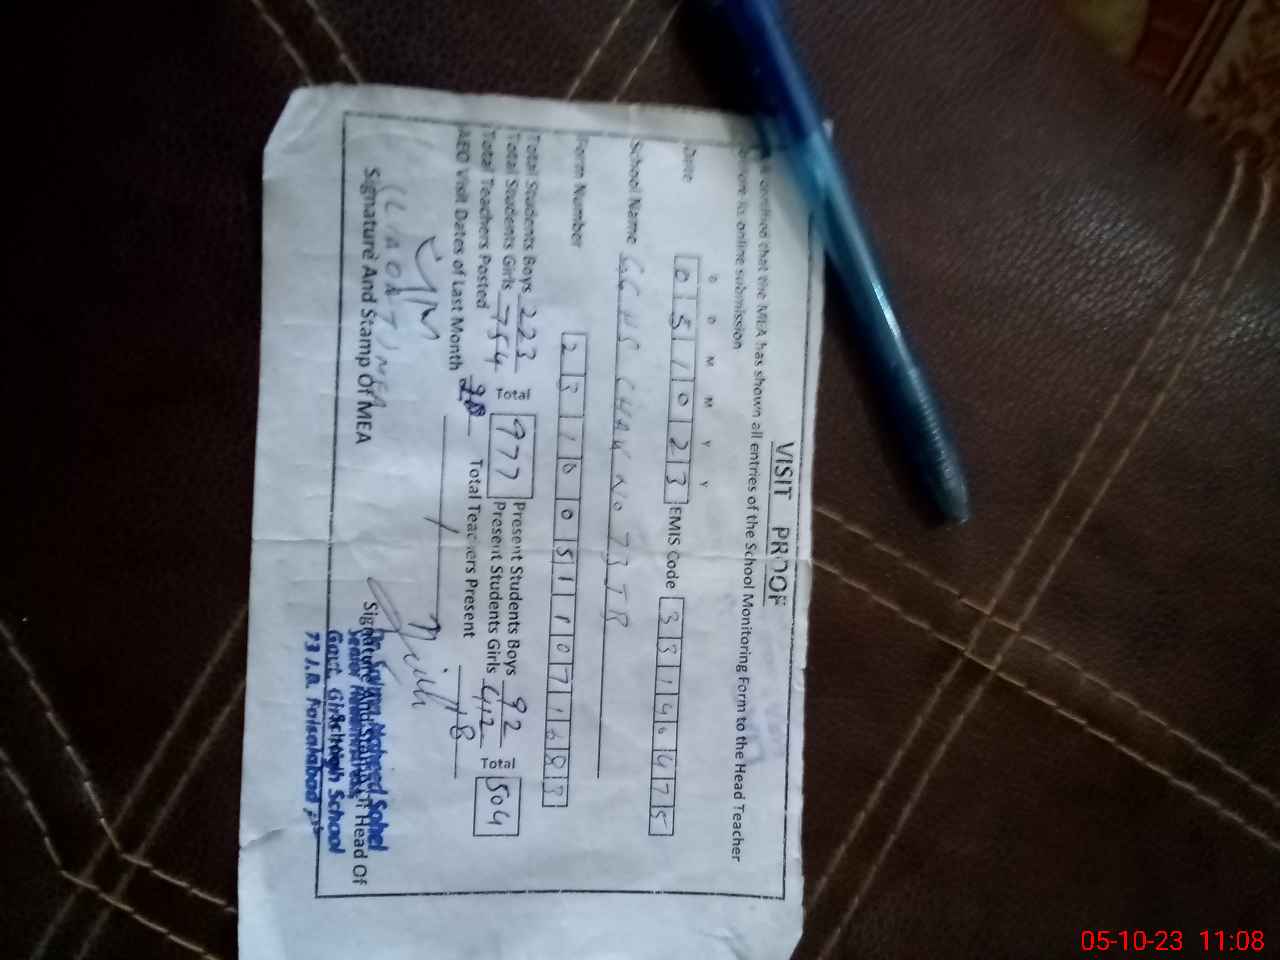 VISIT PROOF
that the MEA has shown all entries of the School Monitoring Form to the Head Teacher
its online submission
D D M M Y Y
Date 0 5 1 0 2 3 EMIS Code 3 3 1 4 4 7 5
School Name GGHS CHAK NO 73 JB
Form Number 2 3 1 0 0 5 1 1 0 7 1 8 3
Total Students Boys 223 Total 977 Present Students Boys 92 Total 504
Total Students Girls 754 Present Students Girls 412
Total Teachers Posted 28 Total Teachers Present 18
AEO Visit Dates of Last Month
LIAQAT MEA
Signature And Stamp Of MEA
Signature And Stamp Of Head Of
Sohel
Senior
Govt. Girls High School
73 J.B. Faisalabad
05-10-23 11:08